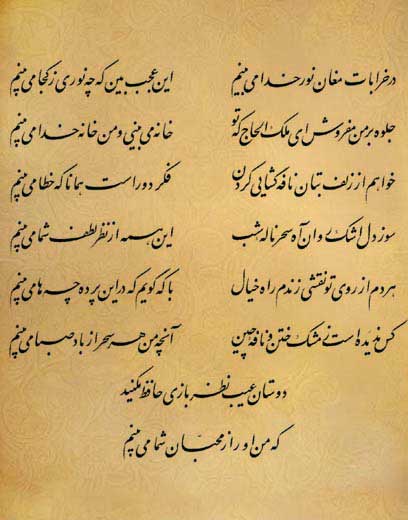 در خرابات مغان نور خدا می بینم
این عجب بین که چه نوری ز کجا می بینم
جلوه بر من مفروش ای ملک الحاج که تو
خانه می بینی و من خانه خدا می بینم
خواهم از زلف بتان نافه گشایی کردن
فکر دور است همانا که خطا می بینم
سوز دل اشک روان آه سحر ناله شب
این همه از نظر لطف شما می بینم
هر دم از روی تو نقشی زندم راه خیال
با که گویم که در این پرده چه ها می بینم
کس ندیده است ز مشک ختن و نافه چین
آنچه من هر سحر از باد صبا می بینم
دوستان عیب نظربازی حافظ مکنید
که من او را ز محبان شما می بینم